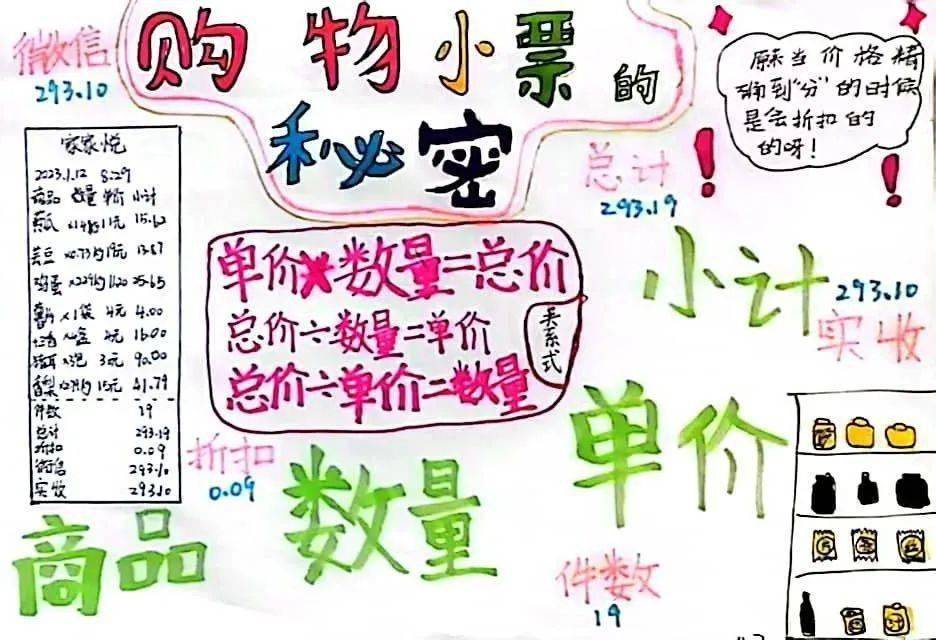 购物小票的
秘密
微信
293.10
原来当价格精
确到“分”的时候
是会折扣的
的呀！
家家悦
2023.1.12 8:29
商品 数量 单价 小计
15.62
13.87
鸡蛋 25.65
x1袋 4元 4.00
16.00
3元 90.00
香梨 15元 41.79
件数 19
总计 293.19
折扣 0.09
微信 293.10
实收 293.10
总计
293.19
单价×数量=总价
总价÷数量=单价
总价÷单价=数量
关系式
小计
293.10
实收
折扣
0.09
单价
数量
商品
件数
19